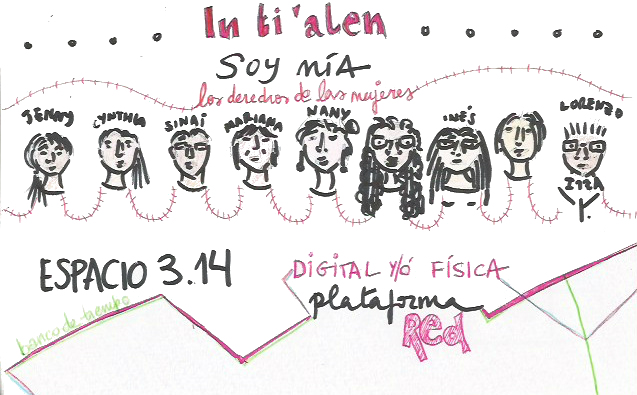 In ti'alen
SOY MÍA
los derechos de las mujeres
JENNY CYNTHIA SINAÍ MARIANA NANY INÉS LORENZO
ITZA
Y.
ESPACIO 3.14
DIGITAL Y/Ó FÍSICA
plataforma
Red
banco de tiempo